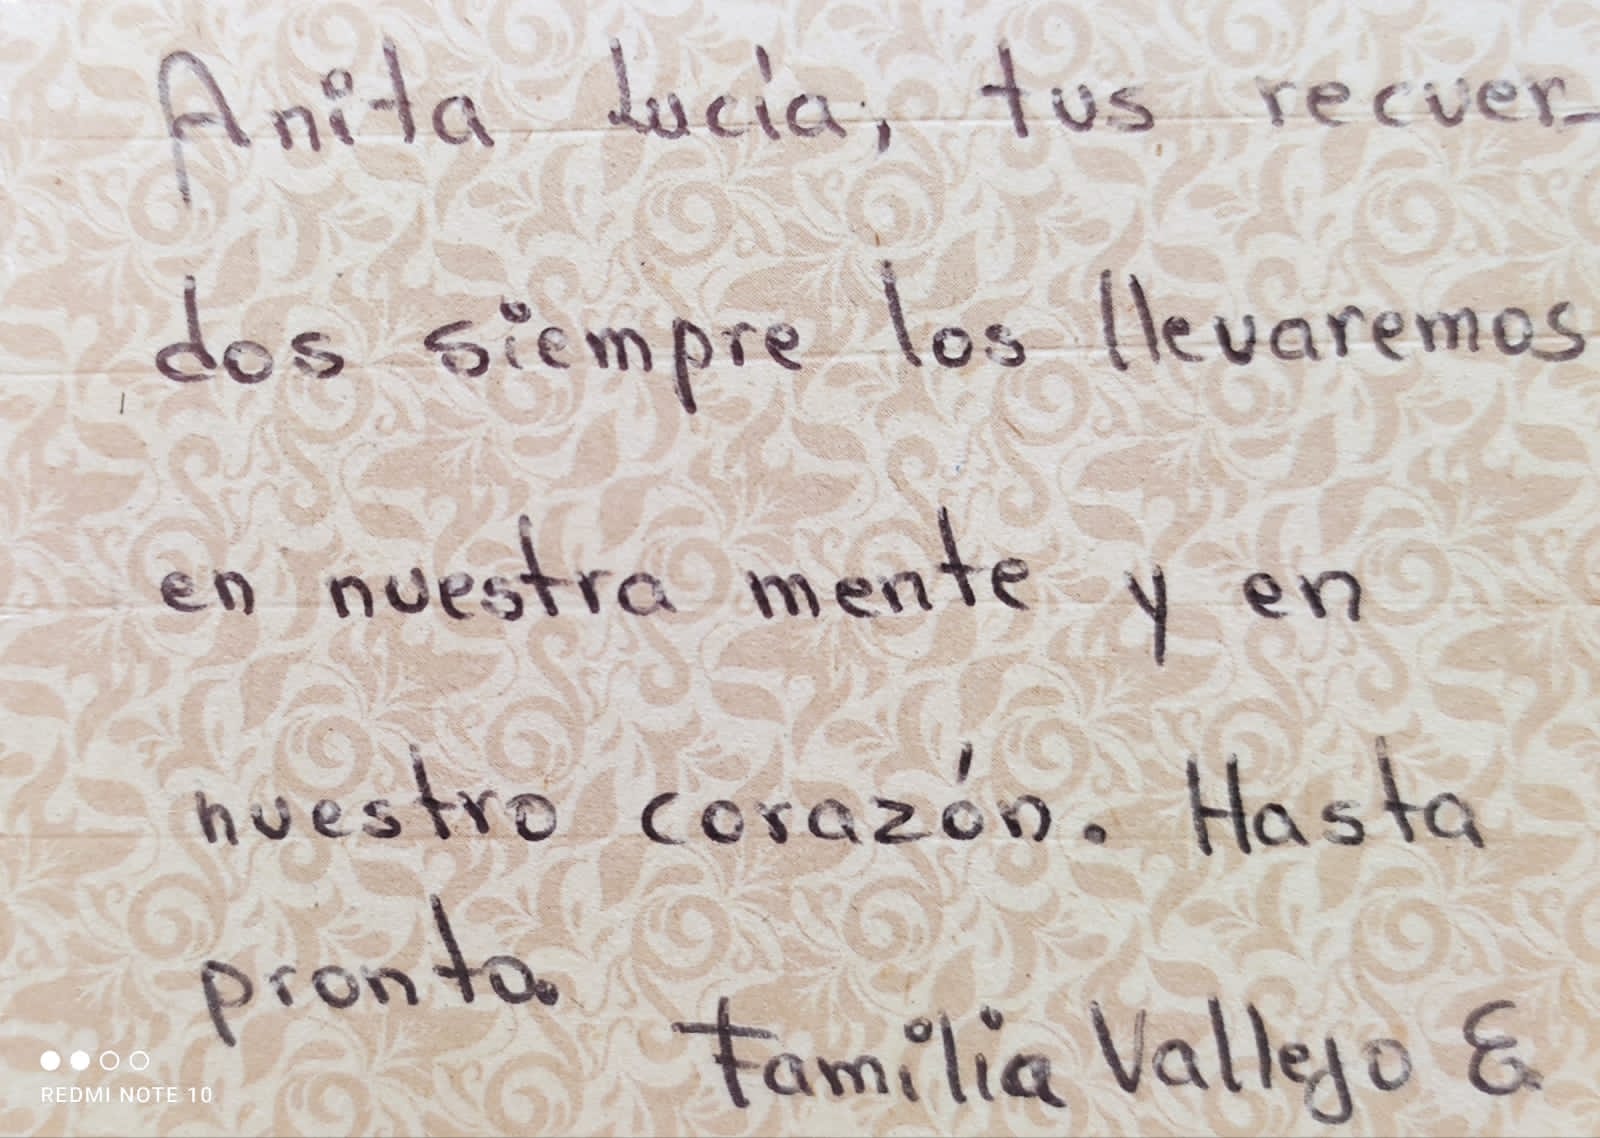 Anita Lucía, tus recuer-
dos siempre los llevaremos
en nuestra mente y en
nuestro corazón. Hasta
pronto.
Familia Vallejo E.
REDMI NOTE 10